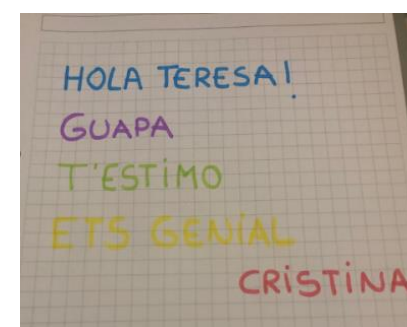 HOLA TERESA!
GUAPA
T'ESTiMO
ETS GENiAL
CRiSTiNA